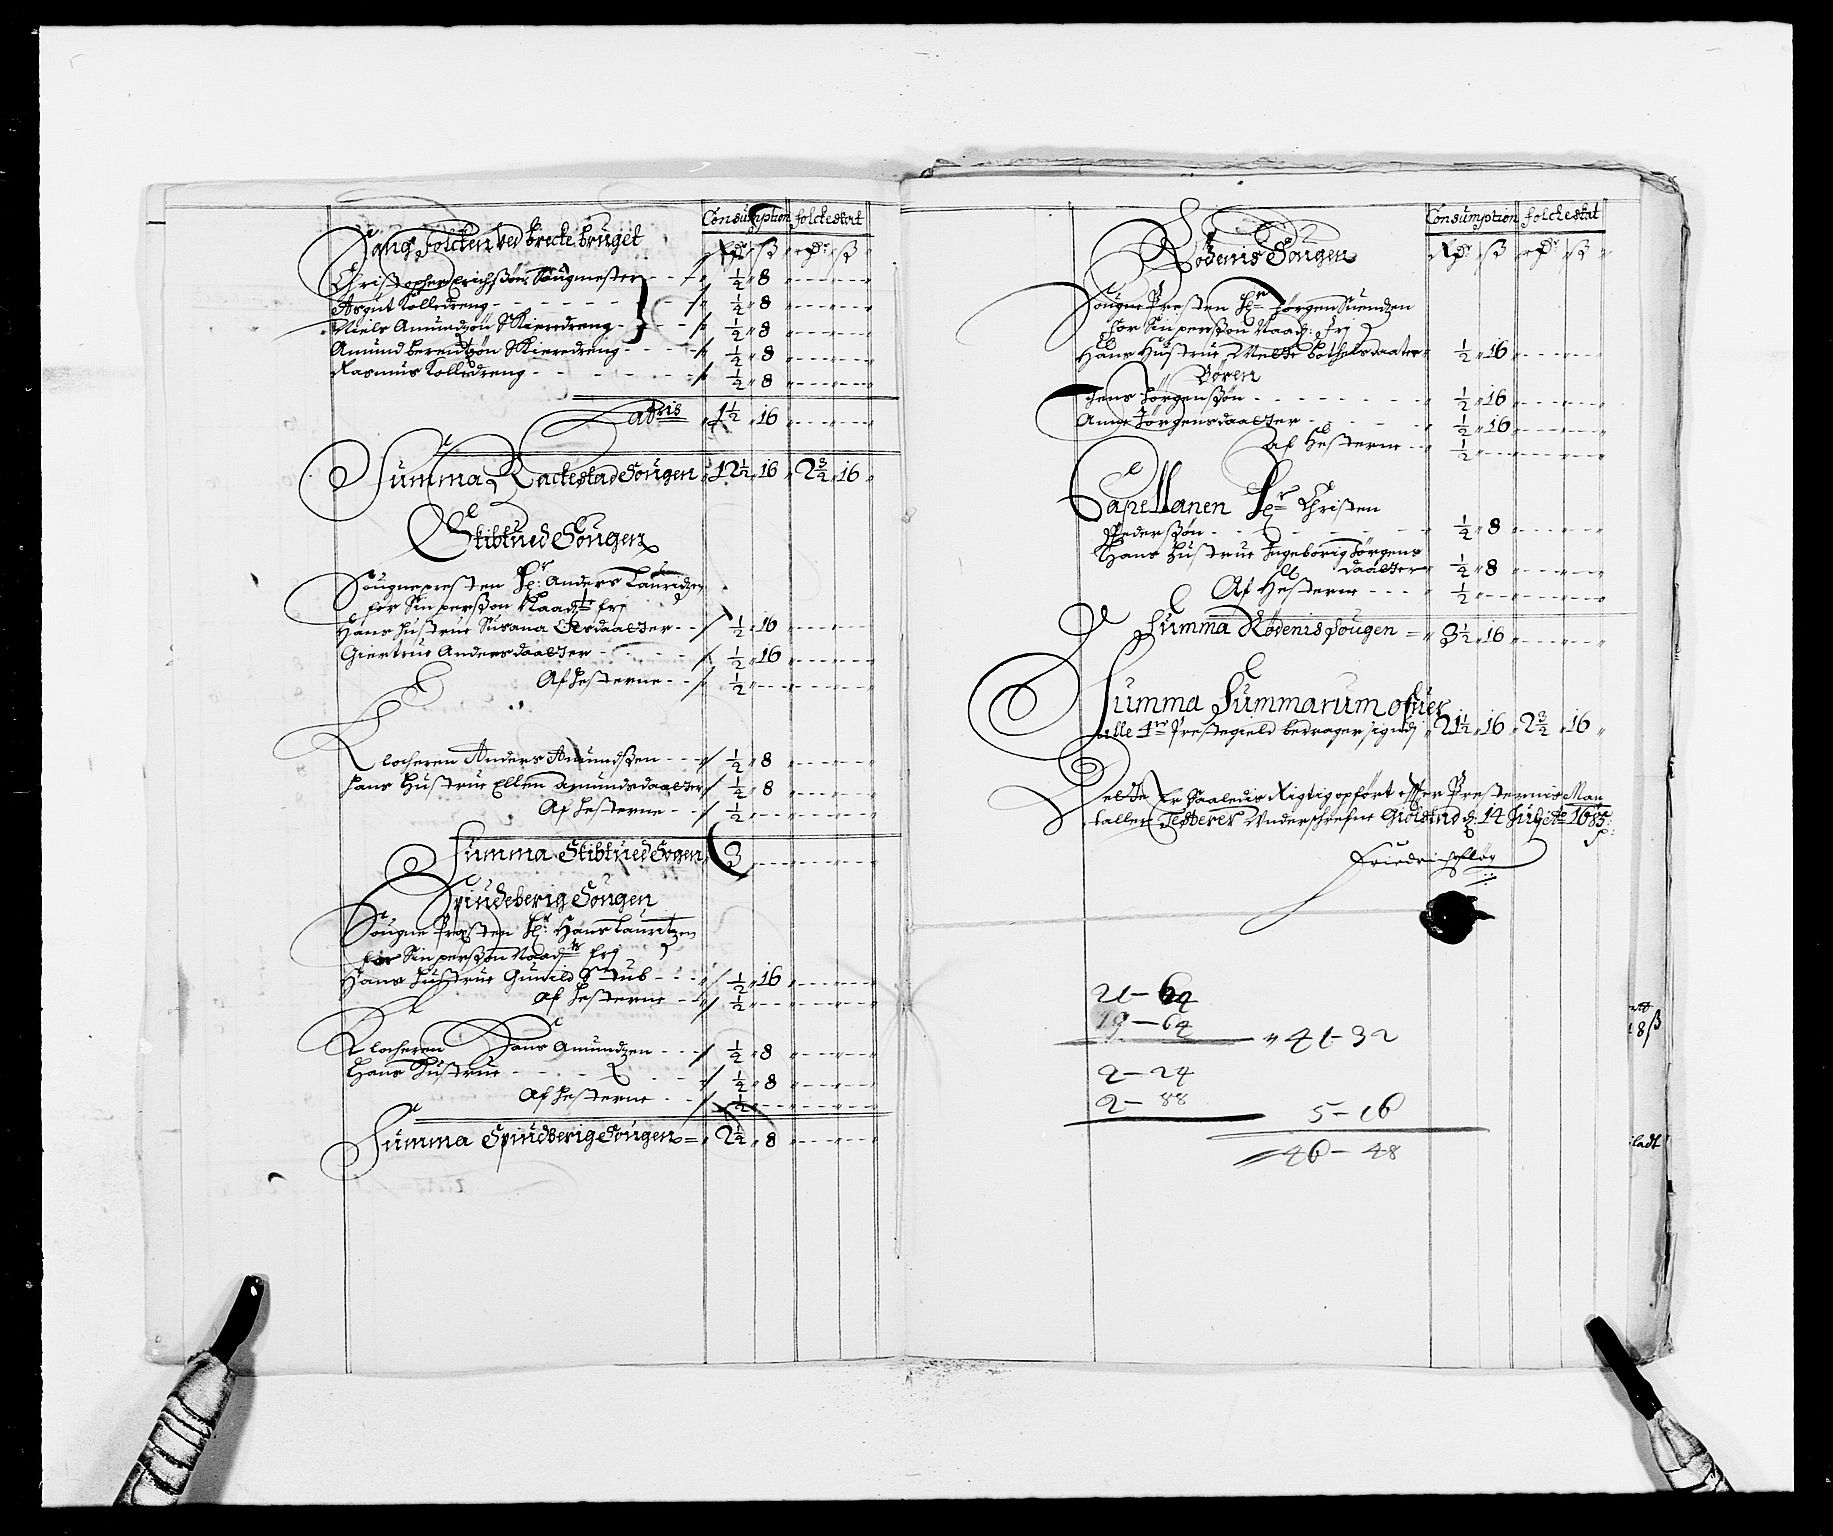 Consumption folckeskat
Saug folcken ved brecke bruget Rdr ß rdr ß
Christopher Erichßøn Saugmester - - ½ 8
Asgut Kolledreng - - ½ 8
Niels Amundsøn Kieredreng - ½ 8
Amund berentsøn Kieredreng - - ½ 8
Rasmus Kolledreng - - ½ 8
Latris 1½ 16
Summa Rackestad Sougen 12½ 16 2½ 16
Skibtued Sougen
Sougnepresten Hr: Anders Lauridzen
for Sin perßon Naadr frj
Hans hustrue Susana daatter - - ½ 16
Giertrue Andersdaatter - - ½ 16
Af hesterne - - ½
Klocheren Anders Amundßen - - ½ 8
hans Hustrue Ellen amundsdaatter ½ 8
Af hesterne - - ½
Summa Skibtued Sogen 3
Spindeberig Sougen
Sougne Presten Hr: Hans Lauritzen
for Sin perßon Naadr frj
Hans hustrue Gunild Stub - - ½ 16
af hesterne - - ½
Klocheren Hans Amundzen - - ½ 8
Hans Hustrue - - ½ 8
Af hesterne - - ½
Summa Spindberig Sougen = 2½ 8
Consumption folckeskat
Rødenis Sougen Rdr ß rdr ß
Sougne Presten Hr Jørgen Suendzen
for Sin perßon Naad: frj
Hans Hustrue Mette bothelsdaater ½ 16
Børen
Jens Jørgenßøn - - ½ 16
Anne Jørgensdaatter - - ½ 16
Af Hesterne - - ½
Capellanen Hr Christen
Pederßøn - - ½ 8
Hans hustrue Ingeborig Jørgens
daatter ½ 8
Af Hesterne - - - ½
Summa Rødenis sougen = 3½ 16
Summa Summarum ofuer
alle 4re Prestegield bedrager sig 21½ 16 2½ 16
Dette Er Saaledis Rigtig opført effter Presternis Man
taller Testerer Underschrefne d: 14 1685
21 - 64
19 - 64
41 - 32
2 - 24
2 - 88
5 - 16
46 - 48
8 ß
ladt